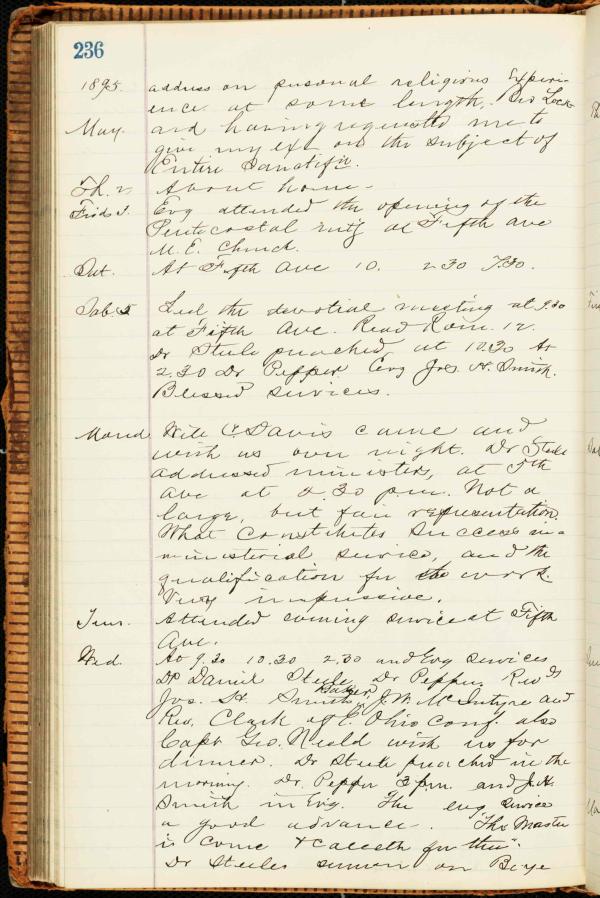 236
1895. address on personal religious experi-
ence at some length. Bro Locke
May. and having requested me to
give my exp on the subject of
Entire Sanctifn.
Th. 2 About home -
Frid. 3. Evg attended the opening of the
Pentecostal mtg at Fifth ave
M.E. Church.
Sat. At Fifth Ave 10. 2.30 7.30.
Sab. 5 Led the devotial meeting at 9.30
at Fifth Ave. Read Rom. 12.
Dr Steele preached at 10.30 At
2.30 Dr Pepper Evg Jos. H. Smith.
Blessed services.
Mond. Will C. Davis came and
with us over night. Dr Steele
addressed ministers, at 5th
Ave at 2.30 p.m. Not a
large, but fair representation.
What Constitutes Success in a
ministerial service, and the
qualification for the work.
Very impressive.
Tues. Attended evening service at Fifth
Ave.
Wed. At 9.30 10.30 2.30 and Evg services
Dr Daniel Steele Dr Pepper, Revds
Jos. H. Smith, Baker, J.W. McIntyre and
Rev. Clark of E. Ohio Conf. also
Capt Geo. Neald with us for
dinner. Dr Steele preached in the
morning. Dr. Pepper 3 p.m. and J.H.
Smith in Evg. The evg service
a good advance. "The Master
is come & calleth for thee".
Dr Steeles sermon on